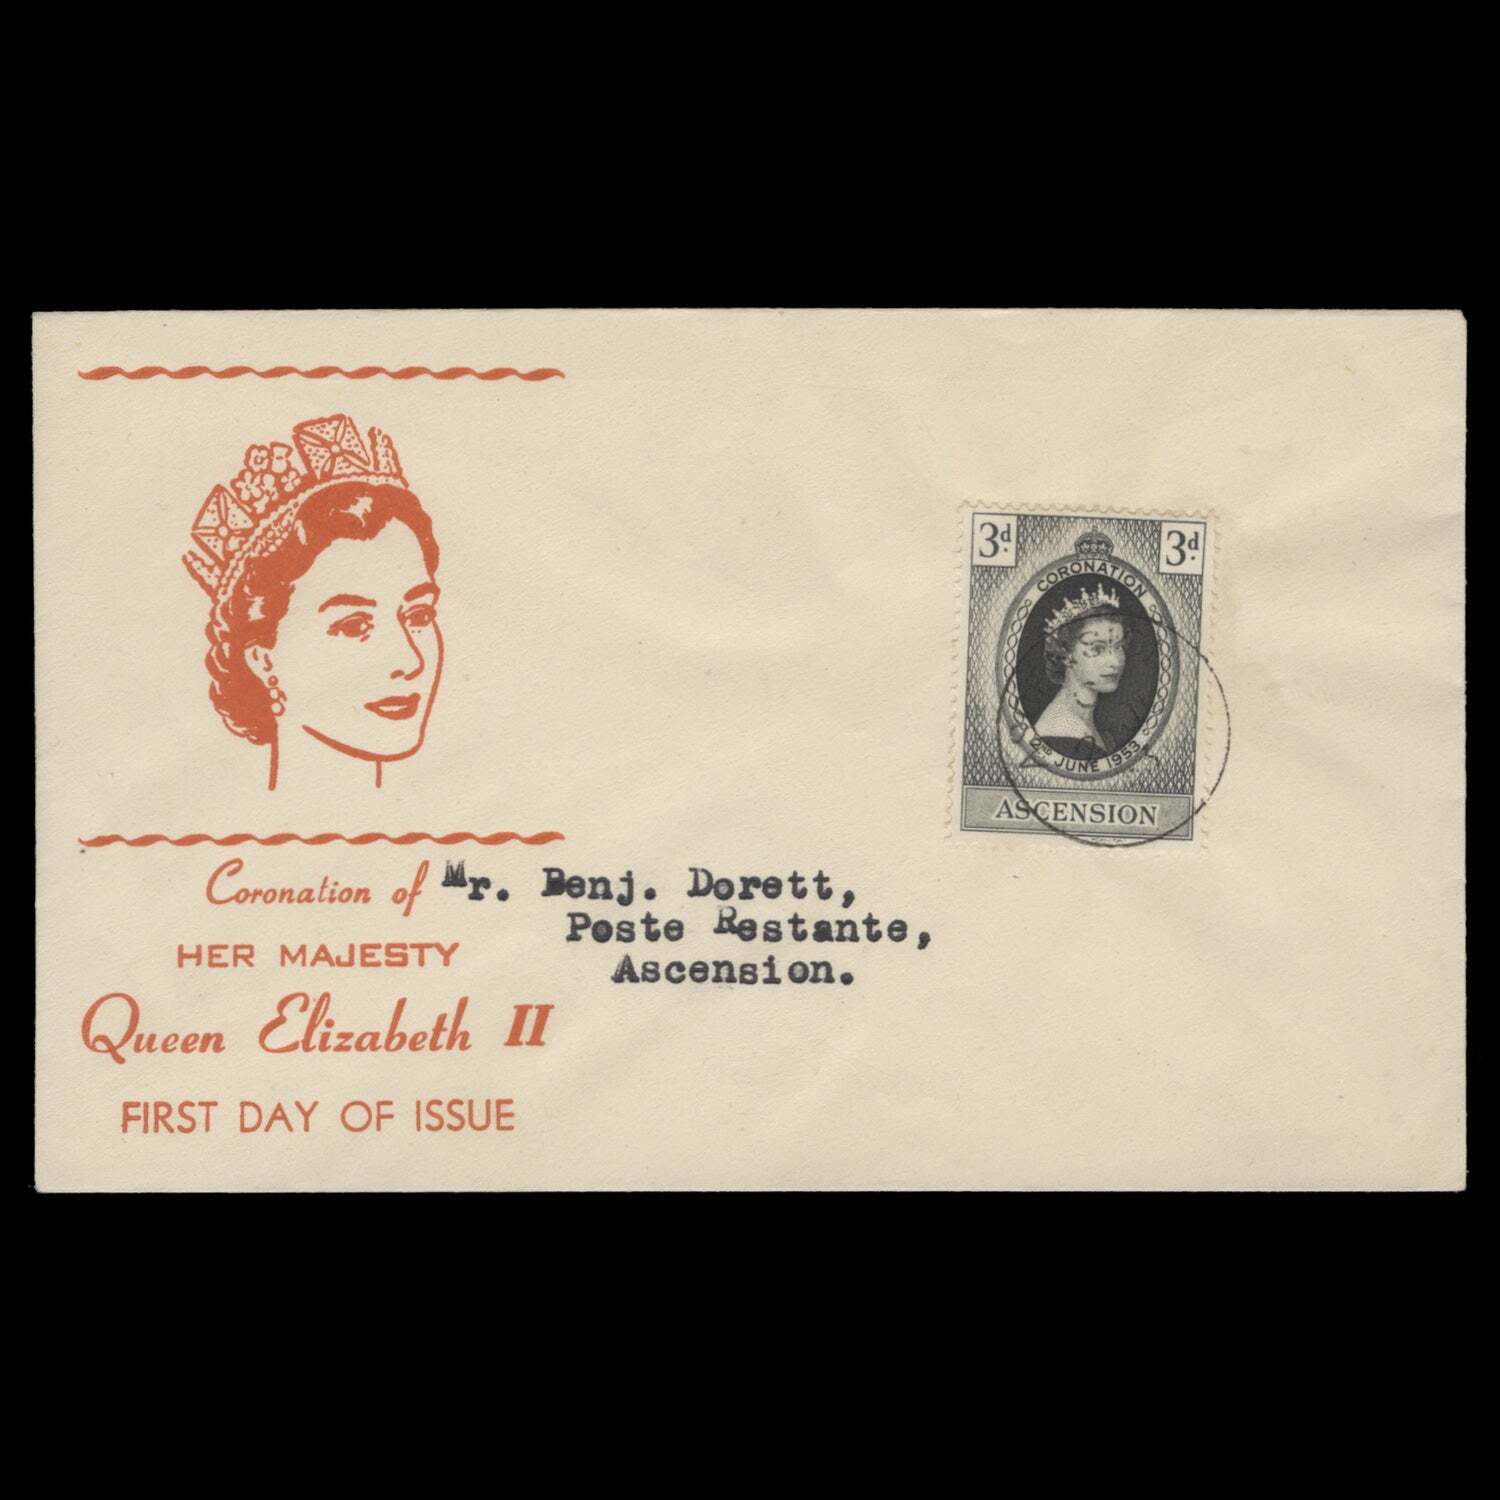 Coronation of
HER MAJESTY
Queen Elizabeth II
FIRST DAY OF ISSUE
Mr. Benj. Dorett,
Poste Restante,
Ascension.
3d. 3d.
CORONATION
2ND JUNE 1953
ASCENSION